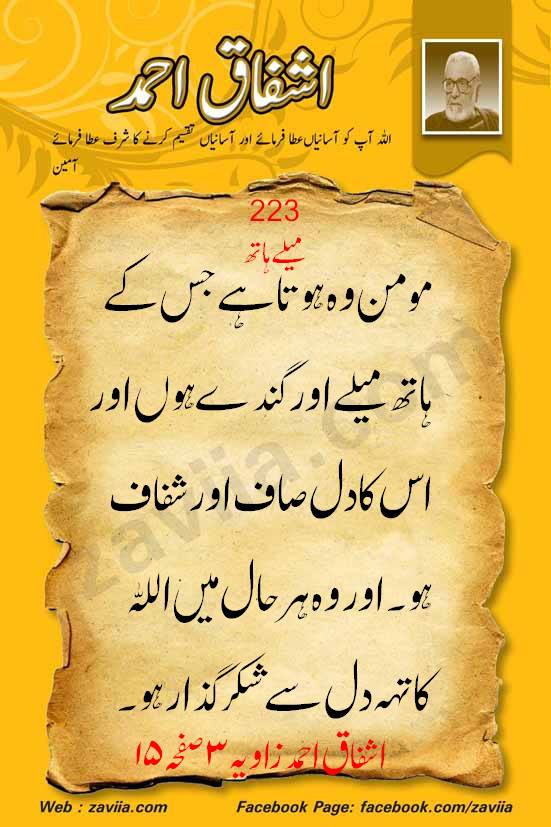 اشفاق احمد
اللہ آپ کو آسانیاں عطا فرمائے اور آسانیاں تقسیم کرنے کا شرف عطا فرمائے
آمین
223
میلے ہاتھ
مومن وہ ہوتا ہے جس کے
ہاتھ میلے اور گندے ہوں اور
اس کا دل صاف اور شفاف
ہو۔ اور وہ ہر حال میں اللہ
کا تہہ دل سے شکر گذار ہو۔
اشفاق احمد زاویہ ۳ صفحہ ۱۵
zaviia.com
Web : zaviia.com Facebook Page: facebook.com/zaviia